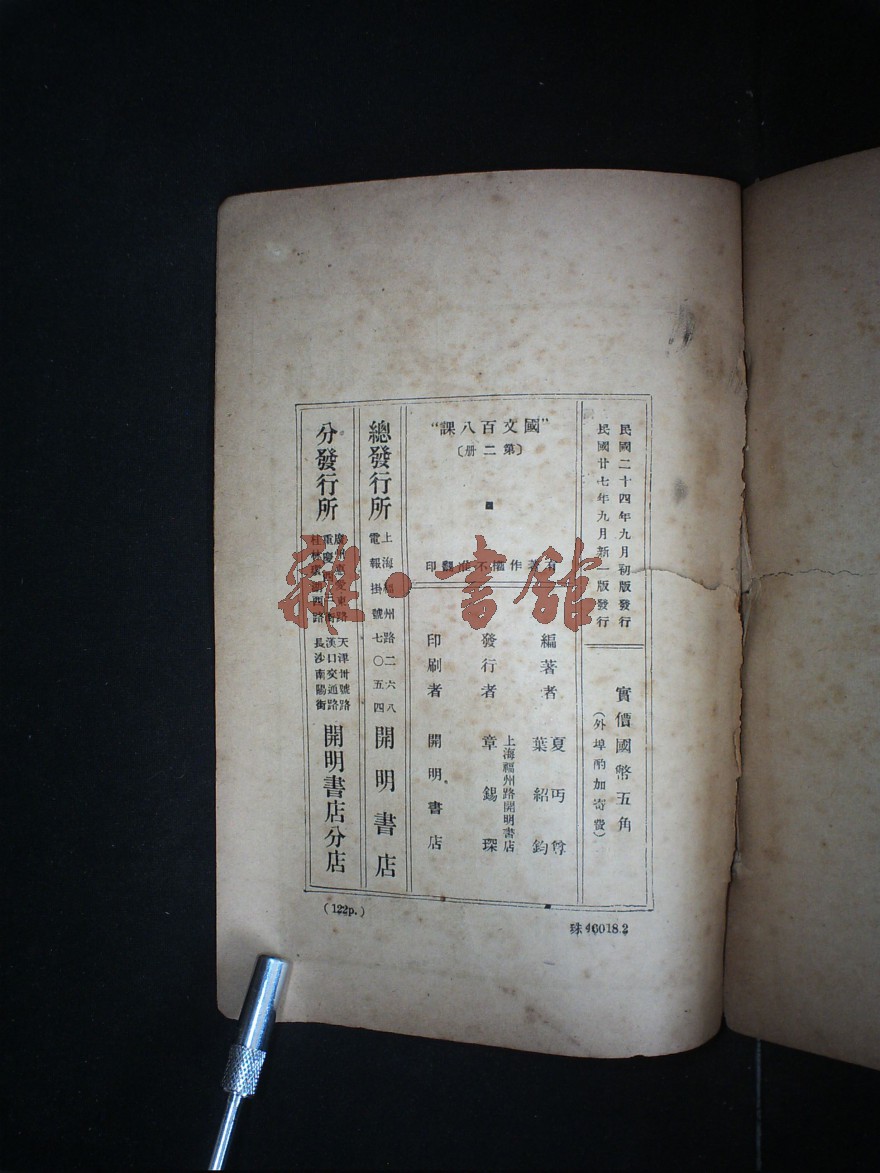 民國二十四年九月初版發行
民國廿七年九月新一版發行
實價國幣五角
(外埠酌加寄費)
“國文百八課”
〔第二册〕
有著作權不准翻印
編著者
夏丏尊
葉紹鈞
發行者
上海福州路開明書店
章錫琛
印刷者
開明書店
總發行所
上海福州路二六八
電報掛號七〇五四
開明書店
分發行所
廣州惠愛東路
重慶西三街
桂林環湖西路
天津卅號路
漢口交通路
長沙南陽街
開明書店分店
(122p.)
珠40018.2
雜·書館